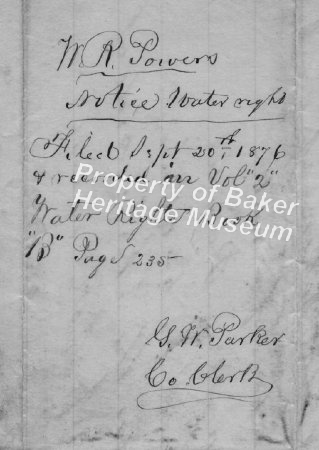 W. R. Powers
Notice Water right
Filed Sept. 20th, 1876
& recorded in Vol "2"
Water Rights Book
"B" Page 235
G. W. Parker
Co. Clerk
Property of Baker
Heritage Museum